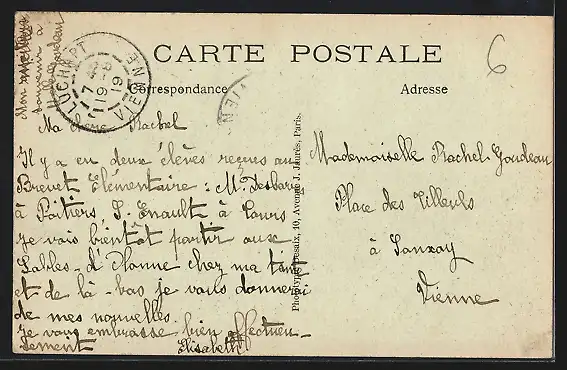 CARTE POSTALE
Correspondance
Adresse
6
LUCHAPT
VIENNE
7 - 8
19
Mon
souvenir à
Ma chère Rachel
Il y a eu deux élèves reçus au
Brevet Elémentaire : M. Desbor
à Poitiers, S. Enault à Tours
Je vais bientôt partir aux
Sables-d'Olonne chez ma tante
et de là-bas je vous donnerai
de mes nouvelles.
Je vous embrasse bien affectueu-
sement
Elisabeth
Mademoiselle Rachel Goudeau
Place des Tilleuls
à Sanxay
Vienne
Phototypie Desaix, 10, Avenue J. Jaurès, Paris.